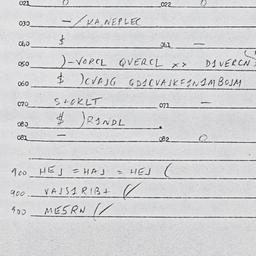 021 0 022 0
030 —/KA,NEPLEC
040 $ 041 —
050 )-VORCL QVERCL xx DIVERCN
060 $ )CVAJG
070 S+OKLT 071 —
080 $ )RINDL
081 — 082 0
900 HEJ = HAJ = HEJ (
900 VAJSIRIB+ (/
400 MESRN (/